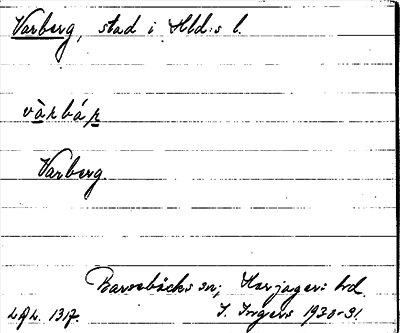 Varberg, stad i Hld:s l.
vàrbá𝑟
Varberg.
Barsebäcks sn; Harjagers hd.
I. Ingers 1930-31.